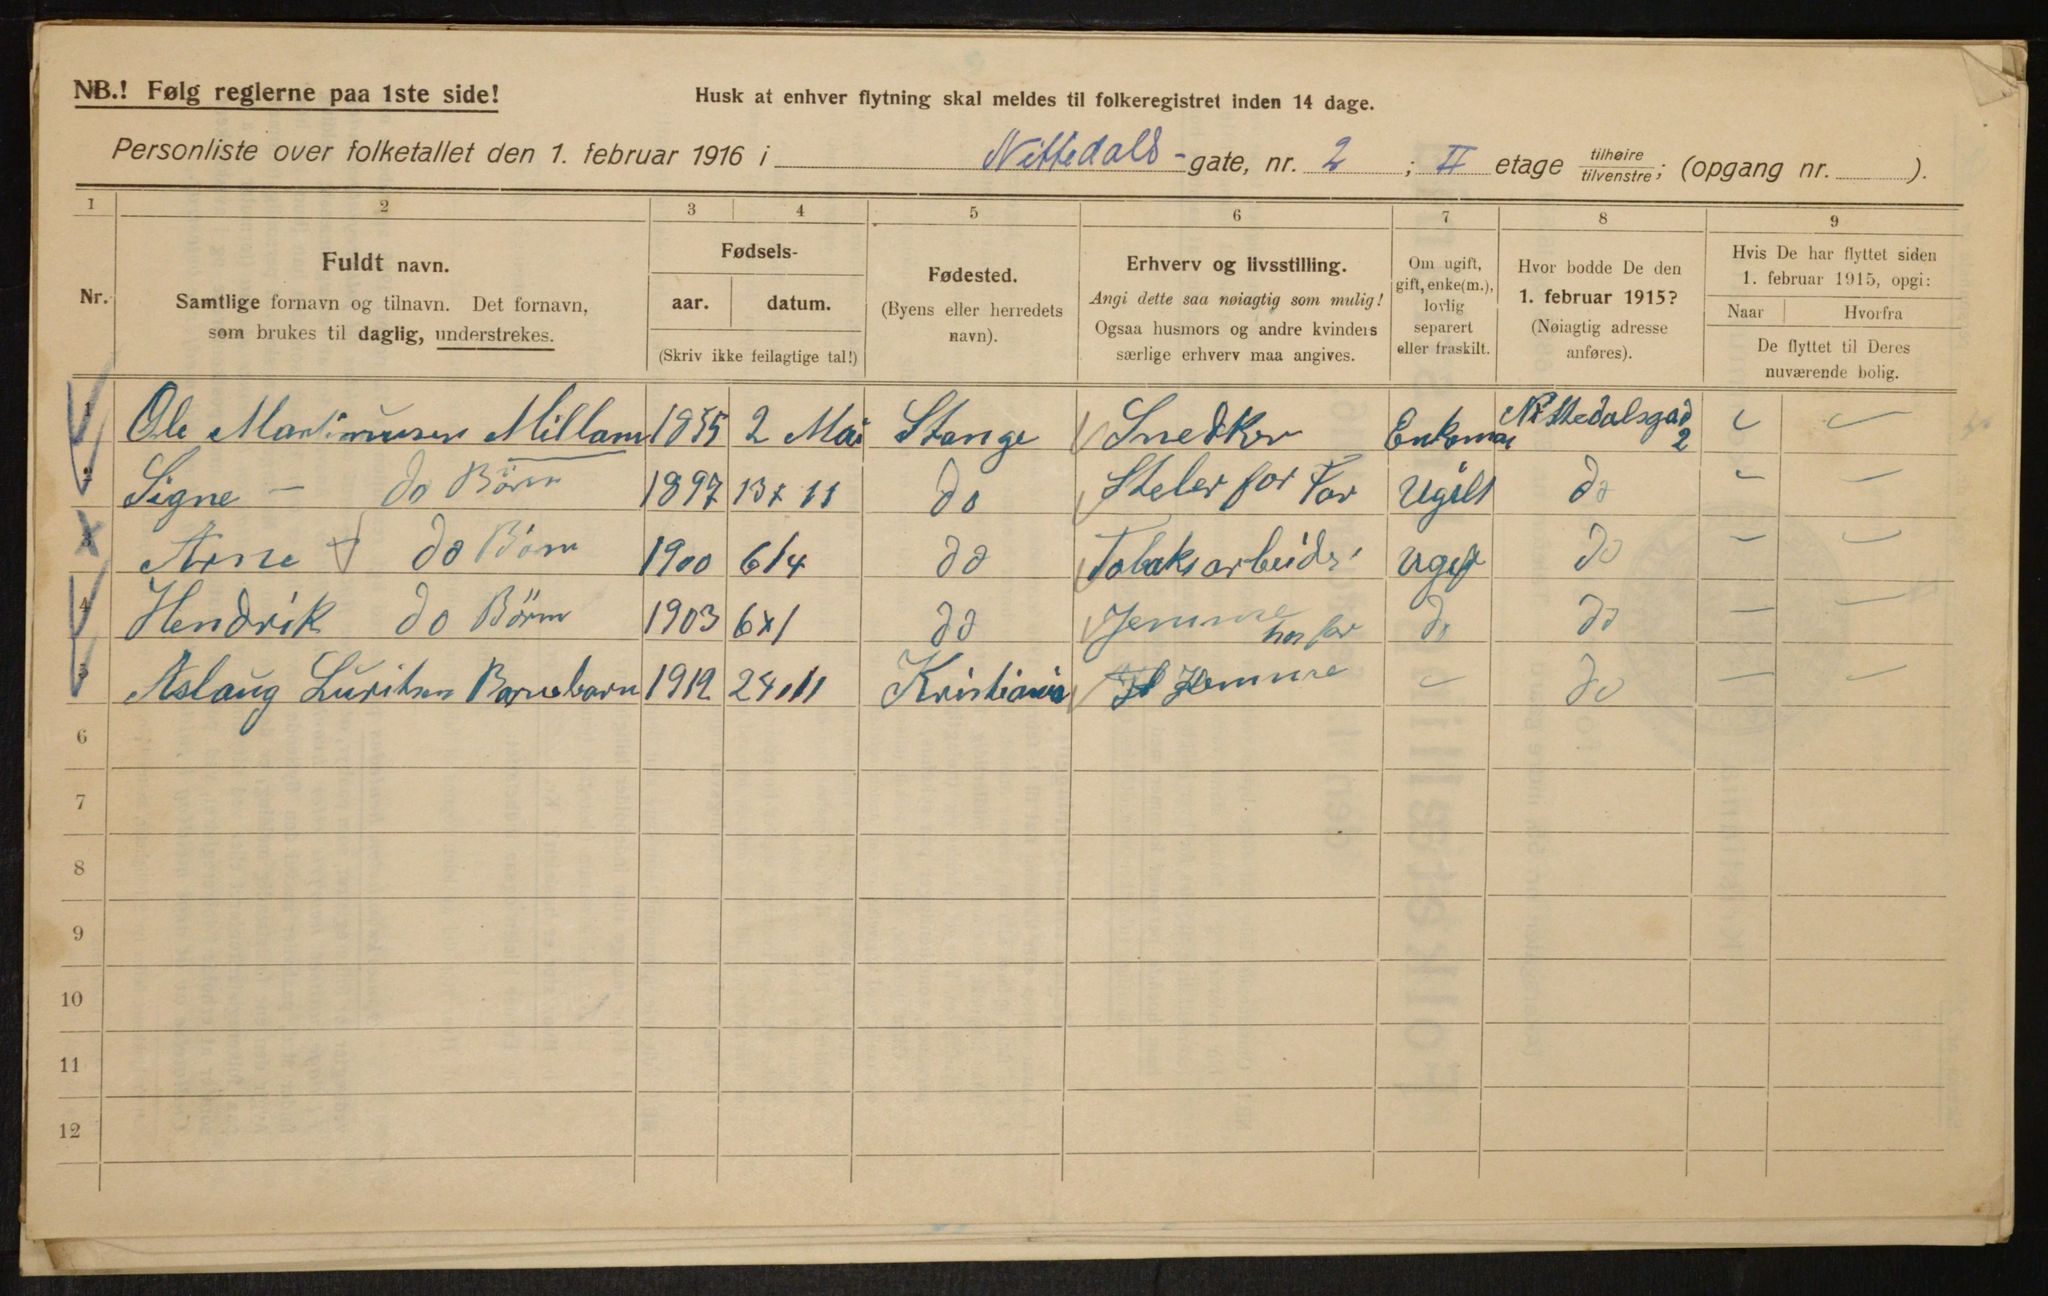 NB.! Følg reglerne paa 1ste side!
Husk at enhver flytning skal meldes til folkeregistret inden 14 dage.
Personliste over folketallet den 1. februar 1916 i Nittedals-gate, nr. 2; II etage tilhøire tilvenstre; (opgang nr. ).
1 2 3 4 5 6 7 8 9
Nr.
Fuldt navn.
Samtlige fornavn og tilnavn. Det fornavn,
som brukes til daglig, understrekes.
Fødsels-
aar. datum.
(Skriv ikke feilagtige tal!)
Fødested.
(Byens eller herredets
navn).
Erhverv og livsstilling.
Angi dette saa nøiagtig som mulig!
Ogsaa husmors og andre kvinders
særlige erhverv maa angives.
Om ugift,
gift, enke(m.),
lovlig
separert
eller fraskilt.
Hvor bodde De den
1. februar 1915?
(Nøiagtig adresse
anføres).
Hvis De har flyttet siden
1. februar 1915, opgi:
Naar Hvorfra
De flyttet til Deres
nuværende bolig.
1 Ole Martinusen Millam 1855 2 Mai Stange Snedker Enkeman Nittedalsgad 2
2 Signe - do Børn 1897 13x11 do Steler for Far Ugift do
3 Arne do Børn 1900 6/4 do Tobaksarbeider Ugift do
4 Hendrik do Børn 1903 6x1 do Jemme hos far do do
5 Aslaug Luritsen Barnebarn 1912 24/11 Kristiania Hemme do
6
7
8
9
10
11
12